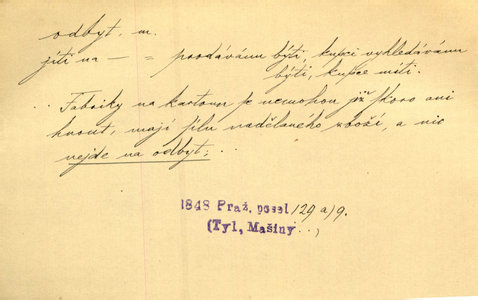 odbyt, m.
jíti na — = prodávánu býti, kupci vyhledávánu
býti, kupce míti.
.. Fabriky na kartoun se nemohou již skoro ani
hnout, mají sílu nadělaného zboží, a nic
nejde na odbyt; ..
1848 Praž. posel 129 a/9.
(Tyl, Mašiny ..)